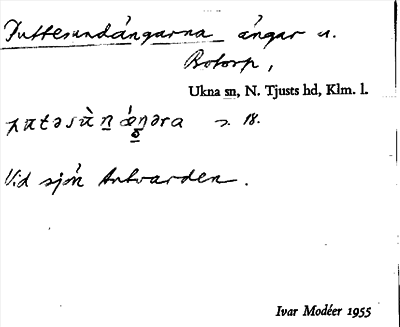 Puttesundängarna ängar u.
Botorp,
Ukna sn, N. Tjusts hd, Klm. l.
s. 18.
Vid sjön Antvarden.
Ivar Modéer 1955